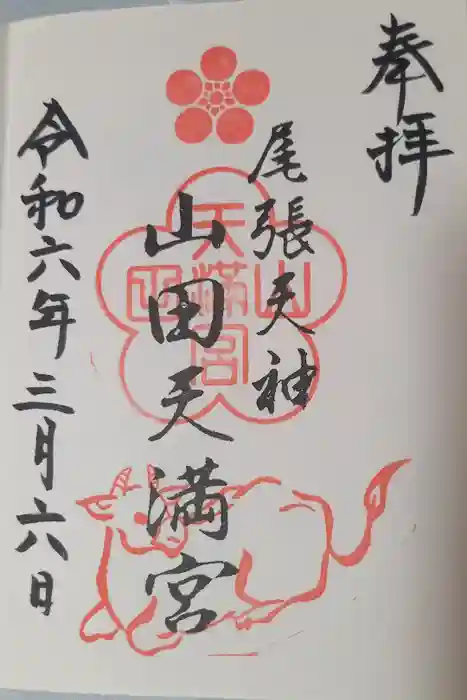 奉拝
尾張天神
山田天満宮
令和六年三月六日
山田
天満宮